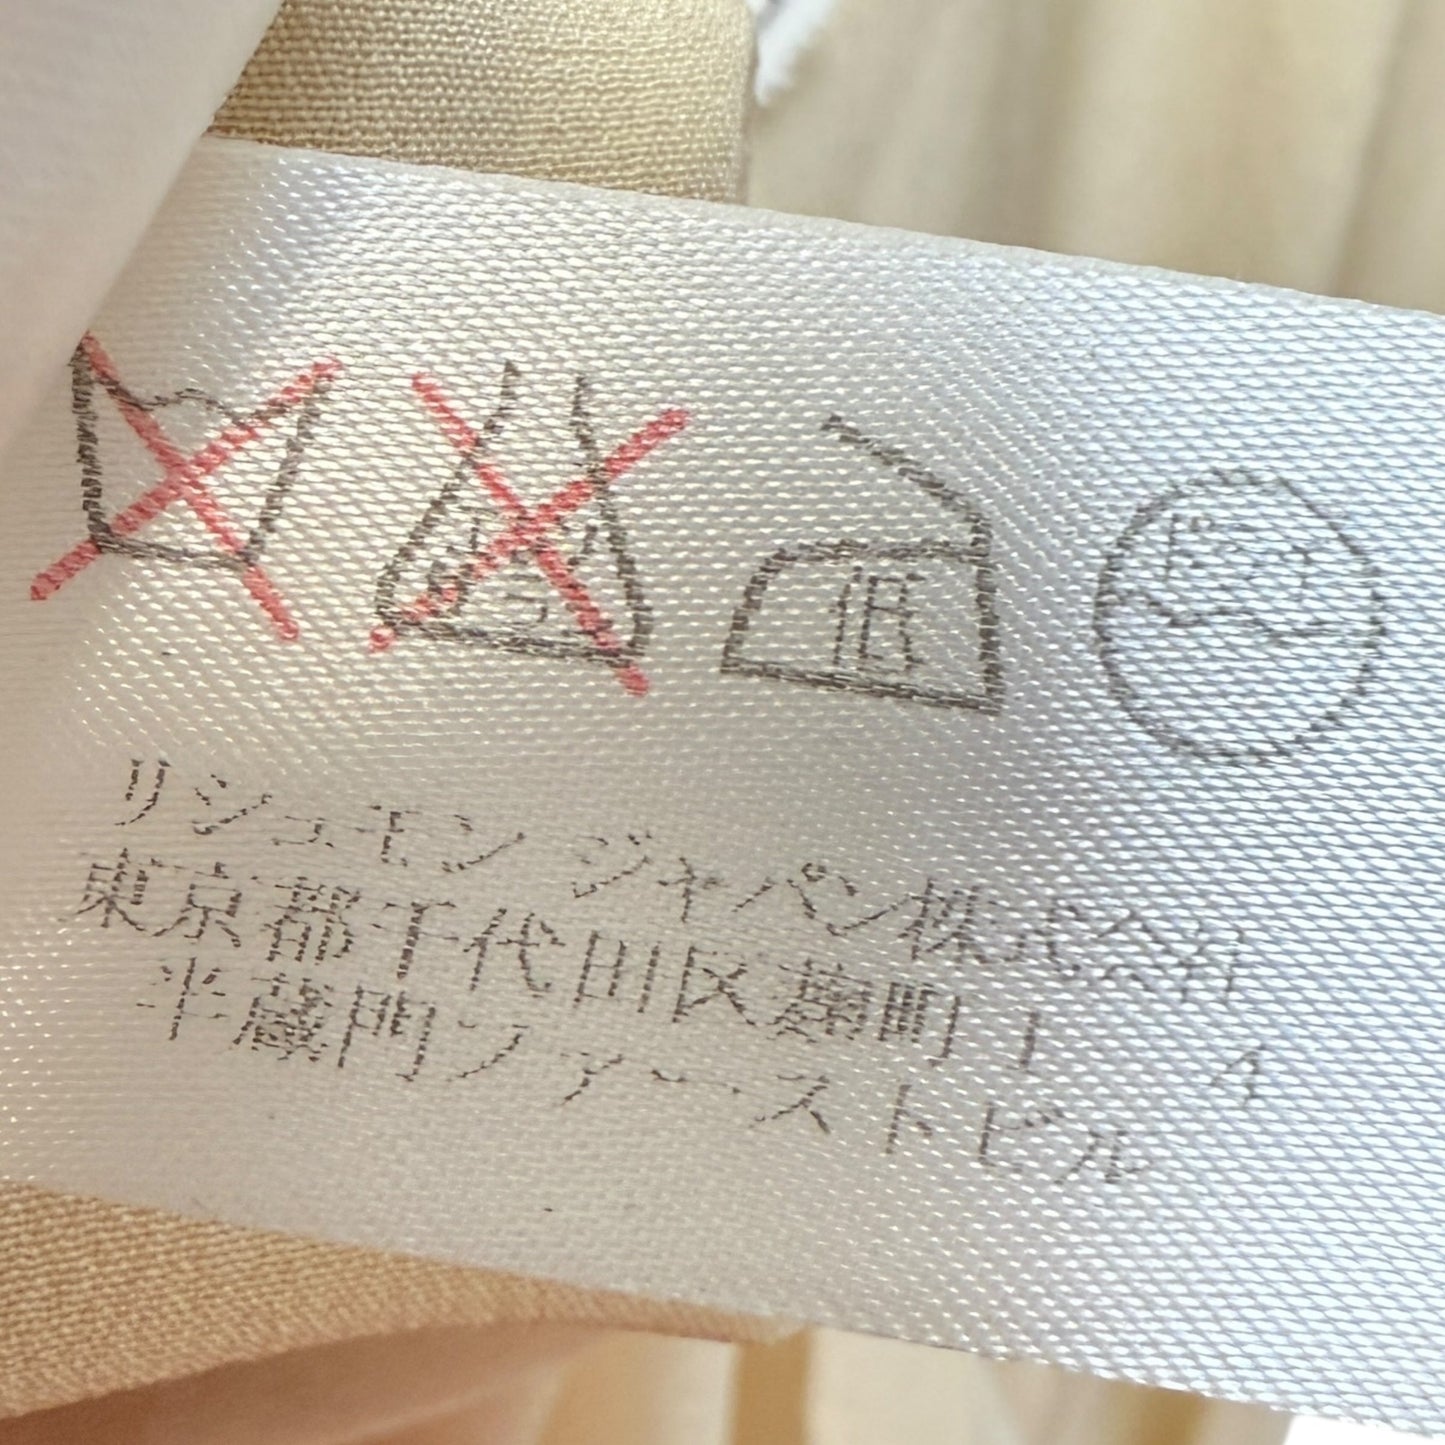 低
リシュモン ジャパン株式会社
東京都千代田区麹町1-4
半蔵門ファーストビル